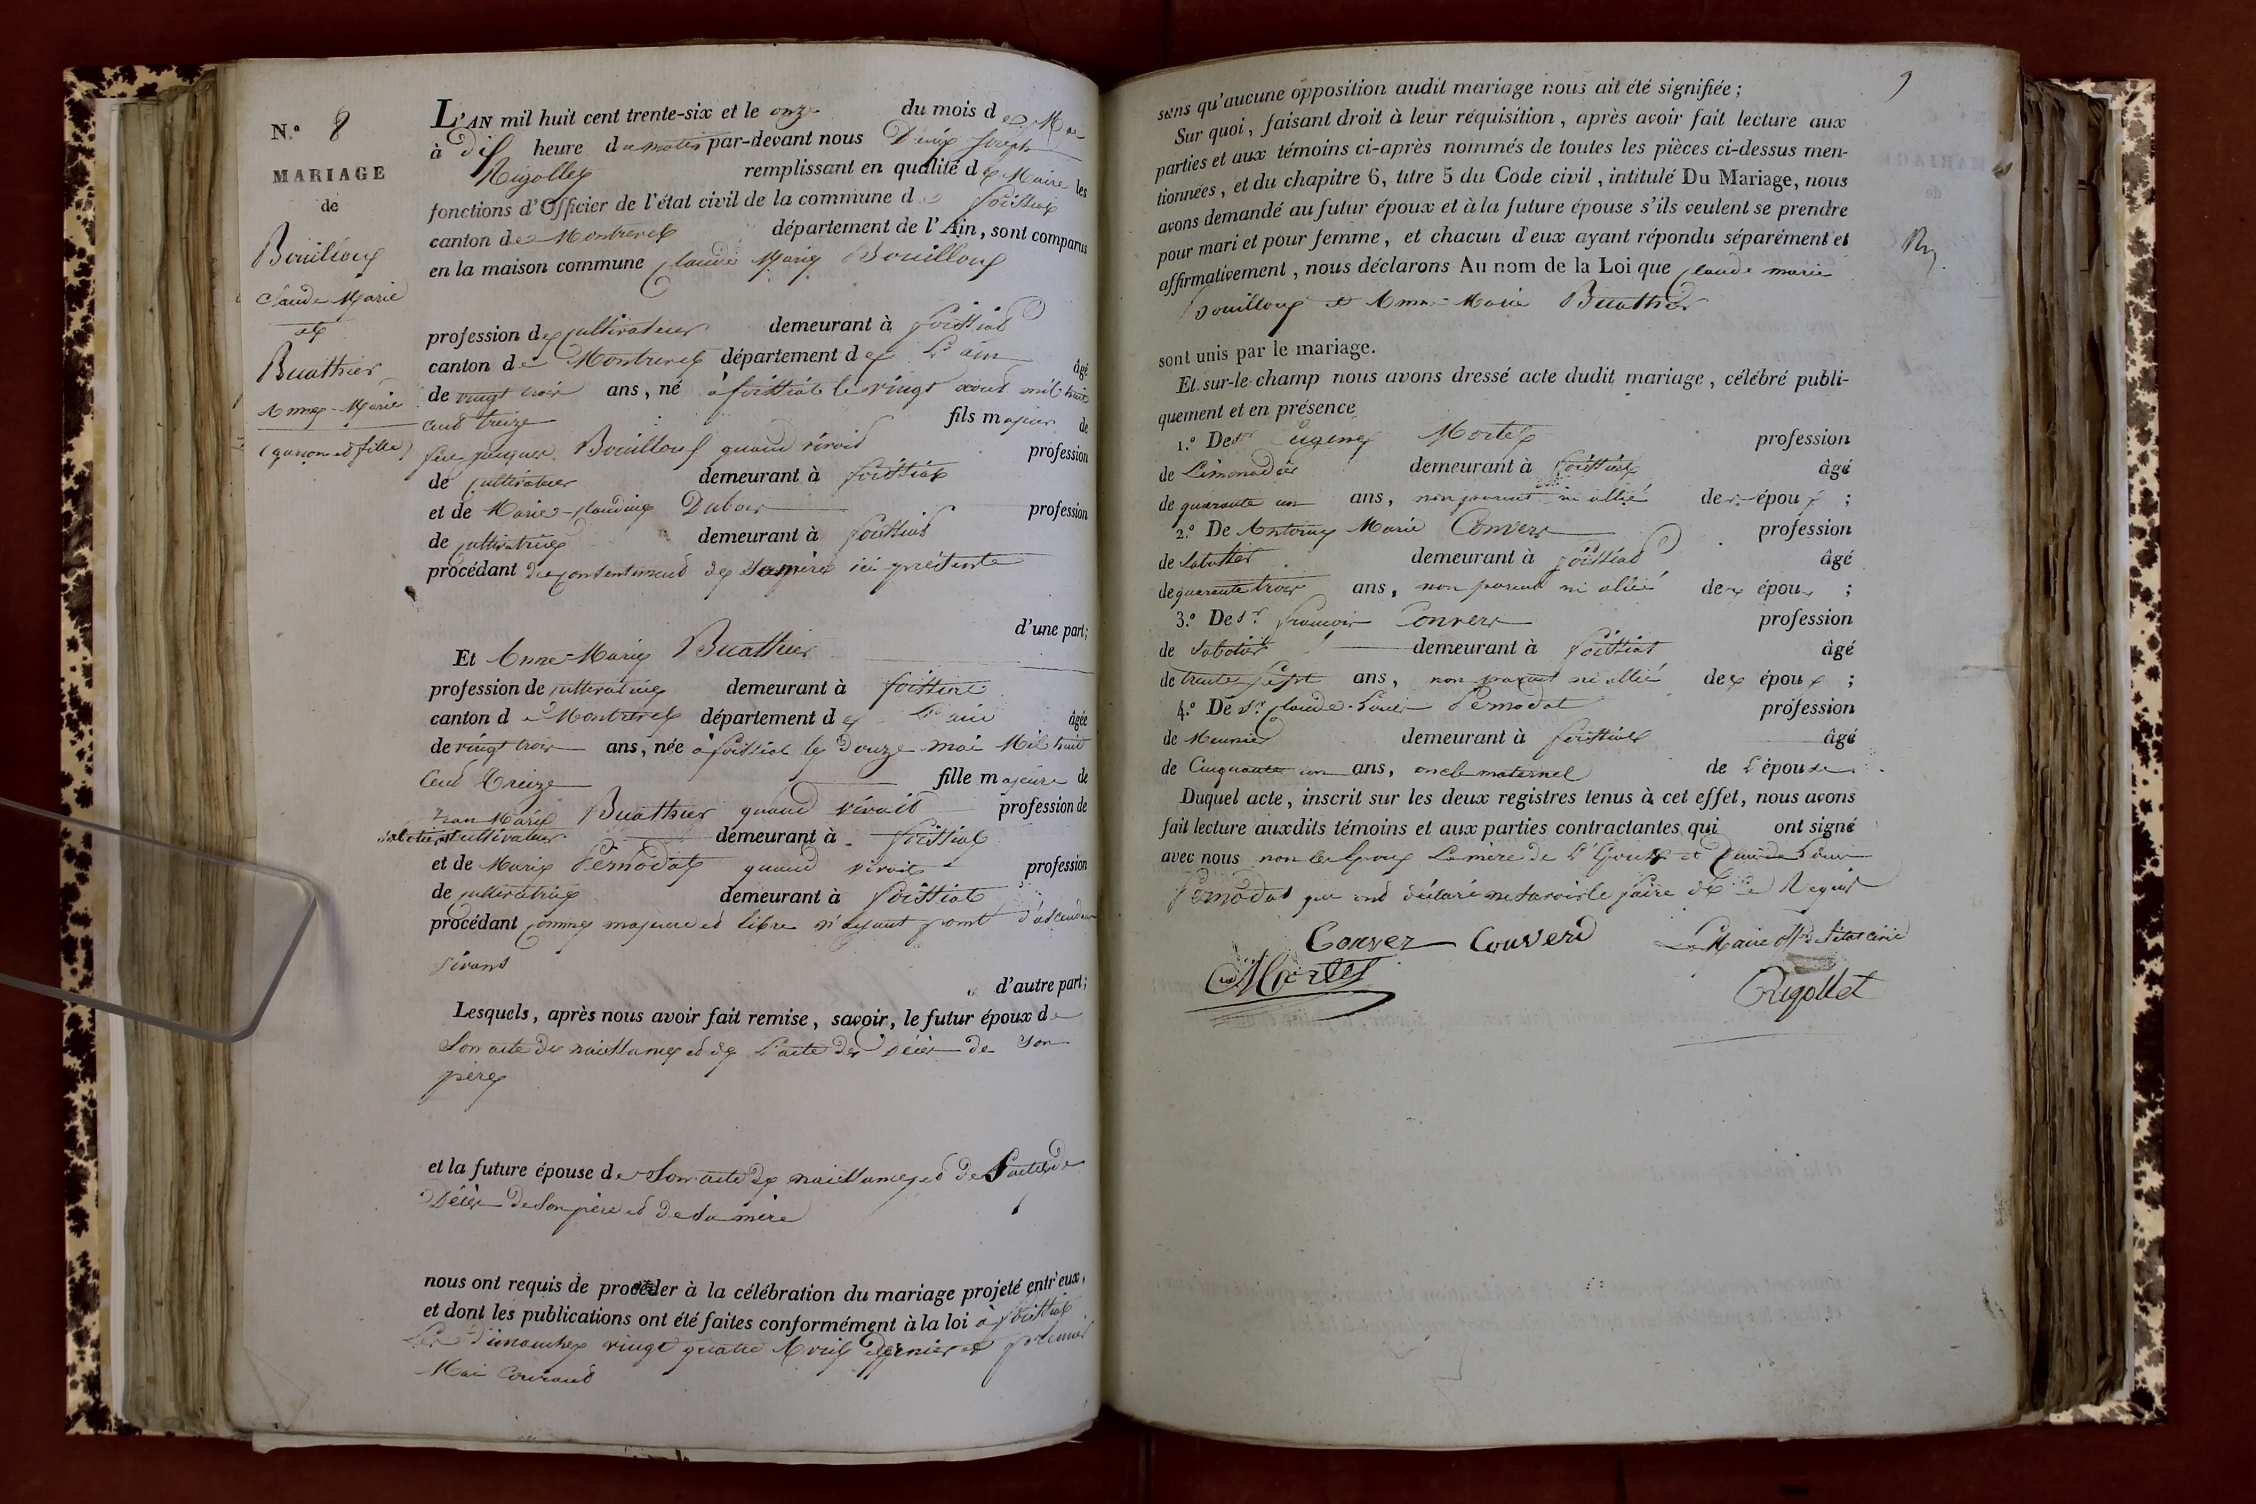 N.º 8
MARIAGE
de
Bouilloux
Claude Marie
et
Buathier
Anne-Marie
(garçon et fille)
L'AN mil huit cent trente-six et le onze du mois de Mai
à dix heure du matin par-devant nous Denis Joseph
Rigollet remplissant en qualité de Maire les
fonctions d'Officier de l'état civil de la commune de foissiat
canton de Montrevel département de l'Ain, sont comparus
en la maison commune Claude Marie Bouilloux
profession de cultivateur demeurant à foissiat
canton de Montrevel département de L'ain âgé
de vingt trois ans, né à foissiat le vingt aout mil huit
cent treize fils majeur de
feu jacques Bouilloux quand vivoit profession
de cultivateur demeurant à foissiat
et de Marie-claudine Dubois profession
de cultivatrice demeurant à foissiat
procédant du consentement de sa mère ici présente
d'une part;
Et Anne-Marie Buathier
profession de cultivatrice demeurant à foissiat
canton de Montrevel département de L'ain âgée
de vingt trois ans, née à foissiat le douze mai Mil huit
Cent Treize fille majeure de
jean Marie Buathier quand vivait profession de
sabotier et cultivateur demeurant à foissiat
et de Marie Pernodat quand vivait profession
de cultivatrice demeurant à foissiat
procédant comme majeure et libre n'ayant point d'ascendans
vivans
d'autre part;
Lesquels, après nous avoir fait remise, savoir, le futur époux de
Son acte de naissance et de L'acte de Décès de son
père
et la future épouse de Son acte de naissance et de L'acte de
Décès de son père et de sa mère
nous ont requis de procéder à la célébration du mariage projeté entr'eux,
et dont les publications ont été faites conformément à la loi à foissiat
Les dimanches vingt quatre Avril dernier et premier
Mai courant
9
sans qu'aucune opposition audit mariage nous ait été signifiée;
Sur quoi, faisant droit à leur réquisition, après avoir fait lecture aux
parties et aux témoins ci-après nommés de toutes les pièces ci-dessus men-
tionnées, et du chapitre 6, titre 5 du Code civil, intitulé Du Mariage, nous
avons demandé au futur époux et à la future épouse s'ils veulent se prendre
pour mari et pour femme, et chacun d'eux ayant répondu séparément et
affirmativement, nous déclarons Au nom de la Loi que Claude marie
Bouilloux et Anne-Marie Buathier
sont unis par le mariage.
Et sur-le-champ nous avons dressé acte dudit mariage, célébré publi-
quement et en présence
1.º De sr Eugene Mortel profession
de Limonadier demeurant à foissiat âgé
de quarante un ans, non parent ni allié des époux;
2.º De Antoine Marie Convers profession
de Sabotier demeurant à foissiat âgé
de quarante trois ans, non parent ni allié des époux;
3.º De sr. francois Convers profession
de Sabotier demeurant à foissiat âgé
de trente sept ans, non parent ni allié des époux;
4.º De sr. claude-Louis Pernodat profession
de Meunier demeurant à foissiat âgé
de Cinquante un ans, oncle maternel de L'épouse.
Duquel acte, inscrit sur les deux registres tenus à cet effet, nous avons
fait lecture auxdits témoins et aux parties contractantes qui ont signé
avec nous non les époux La mère de L'Epoux et Claude Louis
Pernodat qui ont déclaré ne savoir le faire de ce Requis
Convez Converd Le Maire off. de l'état civil
Mortel
Rigollet